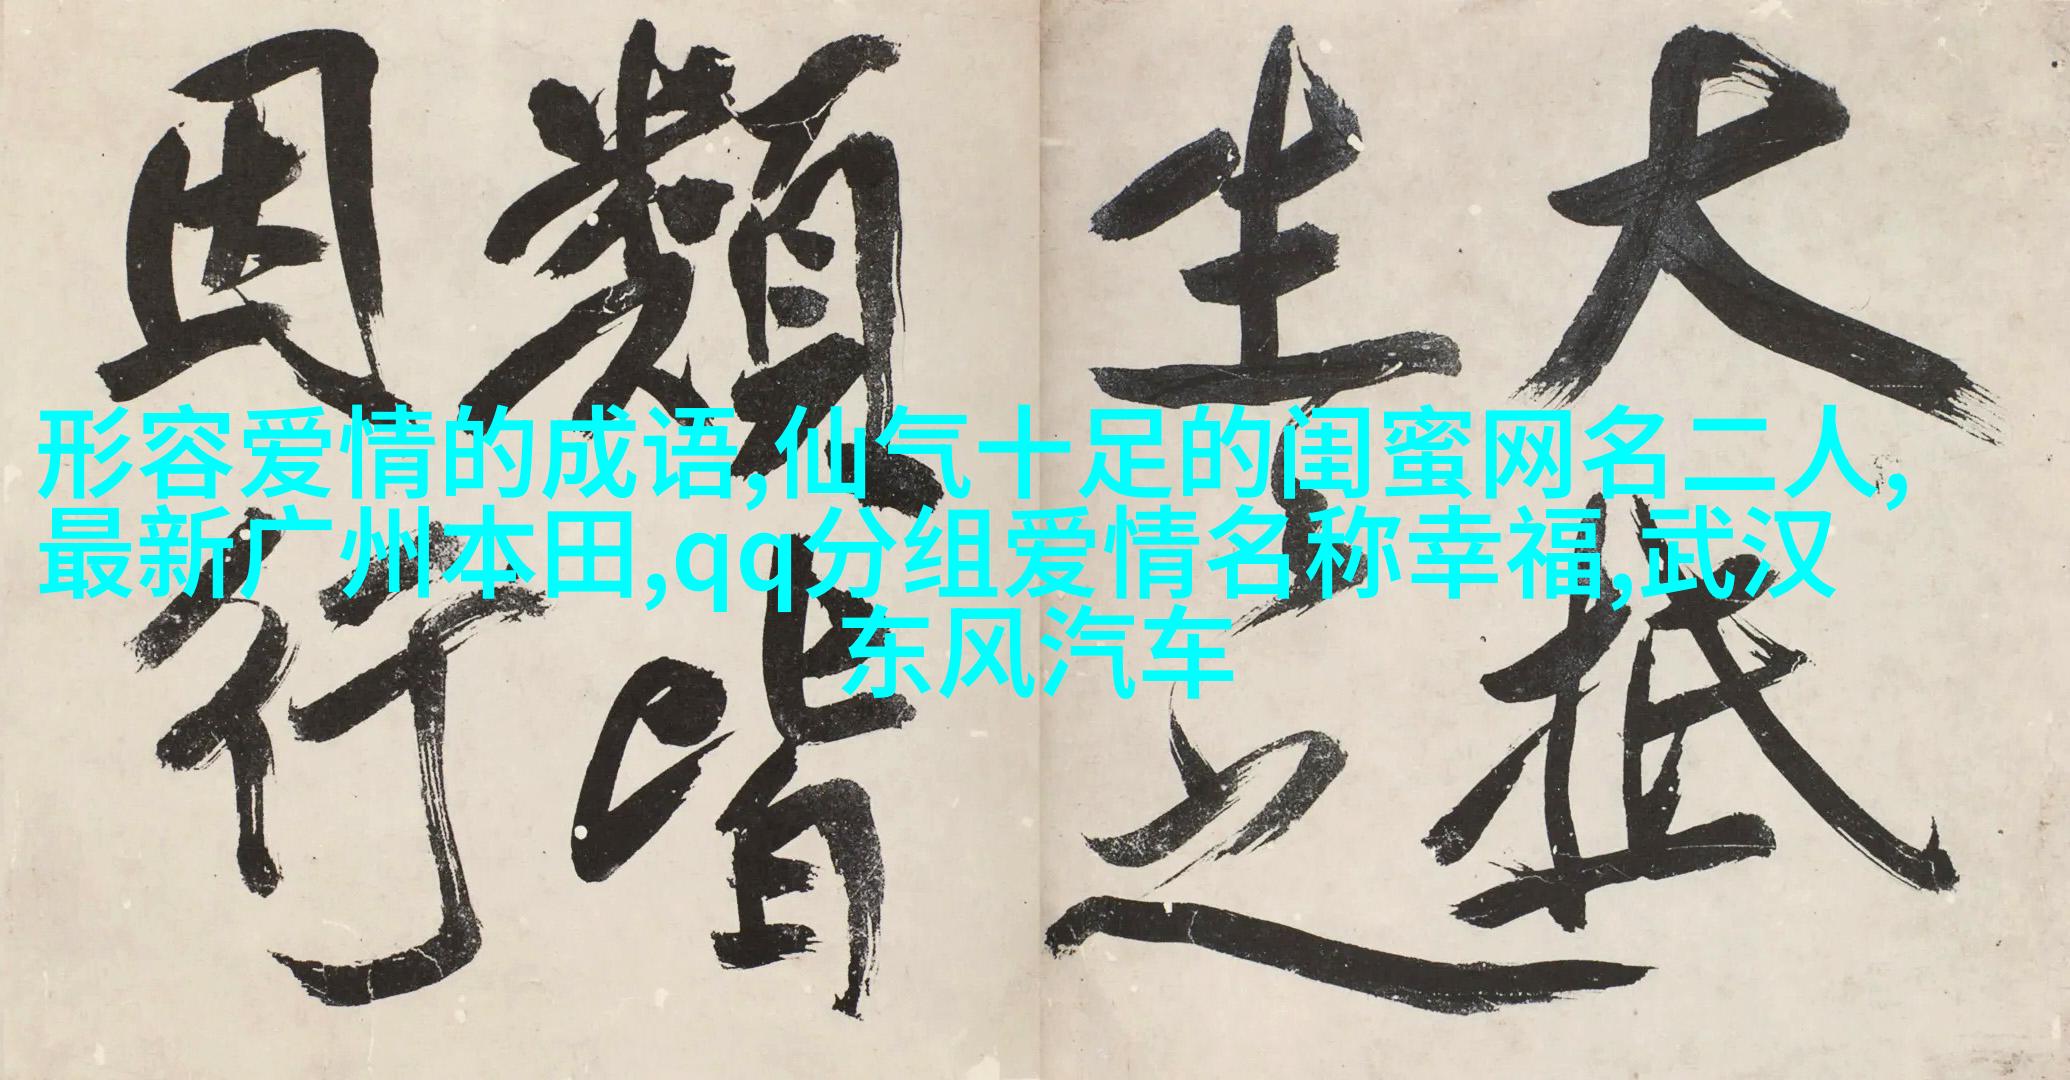 大抵
生之
類皆
因行
形容爱情的成语,仙气十足的闺蜜网名二人,
最新广州本田,qq分组爱情名称幸福,武汉
东风汽车